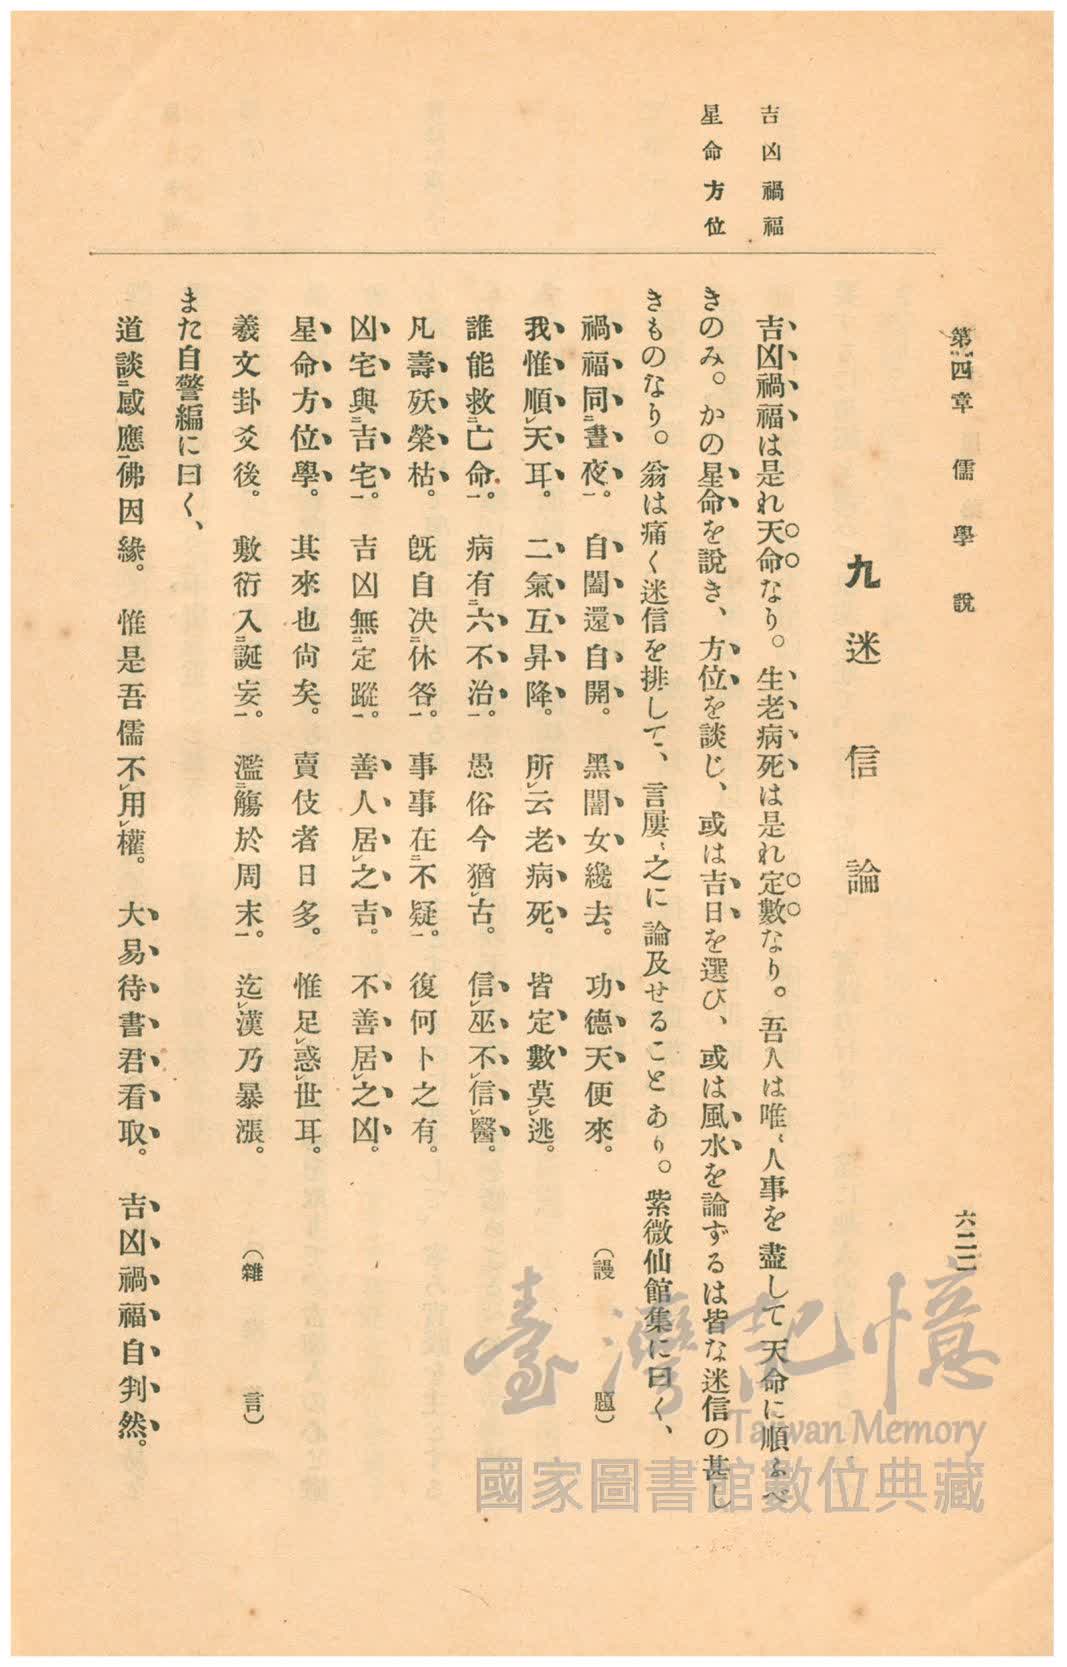 第四章　儒學說
六二二
吉凶禍福
星命方位
九　迷信論
吉凶禍福は是れ天命なり。生老病死は是れ定數なり。吾人は唯〻人事を盡して天命に順ふべ
きのみ。かの星命を說き、方位を談じ、或は吉日を選び、或は風水を論ずるは皆な迷信の甚し
きものなり。翁は痛く迷信を排して、言屢〻之に論及せることあり。紫微仙館集に曰く、
禍福同㆓晝夜㆒。　自闔還自開。　黑闇女纔去。　功德天便來。　（謾題）
我惟順㆑天耳。　二氣互昇降。　所㆑云老病死。　皆定數莫㆑逃。
誰能救㆓亡命㆒。　病有㆓六不治㆒。　愚俗今猶㆑古。　信㆑巫不㆑信㆑醫。
凡壽殀榮枯。　旣自决㆓休咎㆒。　事事在㆓不疑㆒。　復何卜之有。
凶宅與㆓吉宅㆒。　吉凶無㆓定蹤㆒。　善人居㆑之吉。　不善居㆑之凶。
星命方位學。　其來也尙矣。　賣伎者日多。　惟足㆑惑㆑世耳。
羲文卦爻後。　敷衍入㆓誕妄㆒。　濫㆓觴於周末㆒。　迄㆑漢乃暴漲。　（雜言）
また自警編に曰く、
道談㆓感應㆒佛因緣。　惟是吾儒不㆑用㆑權。　大易待書君看取。　吉凶禍福自判然。
臺灣記憶
Taiwan Memory
國家圖書館數位典藏